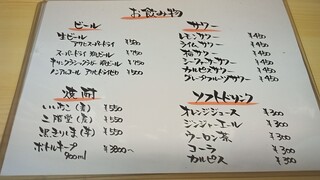 お飲み物
ビール
生ビール
アサヒスーパードライ ¥550
スーパードライ 瓶ビール ¥750
キリンクラシックラガー 瓶ビール ¥750
ノンアルコール アサヒドライゼロ ¥500
焼酎
いいちこ(麦) ¥550
二階堂(麦) ¥550
黒きりしま(芋) ¥550
ボトルキープ 900ml ¥3800〜
サワー
レモンサワー ¥450
ライムサワー ¥450
梅サワー ¥450
シークァーサーサワー ¥450
カルピスサワー ¥450
グレープフルーツサワー ¥450
ソフトドリンク
オレンジジュース ¥300
ジンジャーエール ¥300
ウーロン茶 ¥300
コーラ ¥300
カルピス ¥300